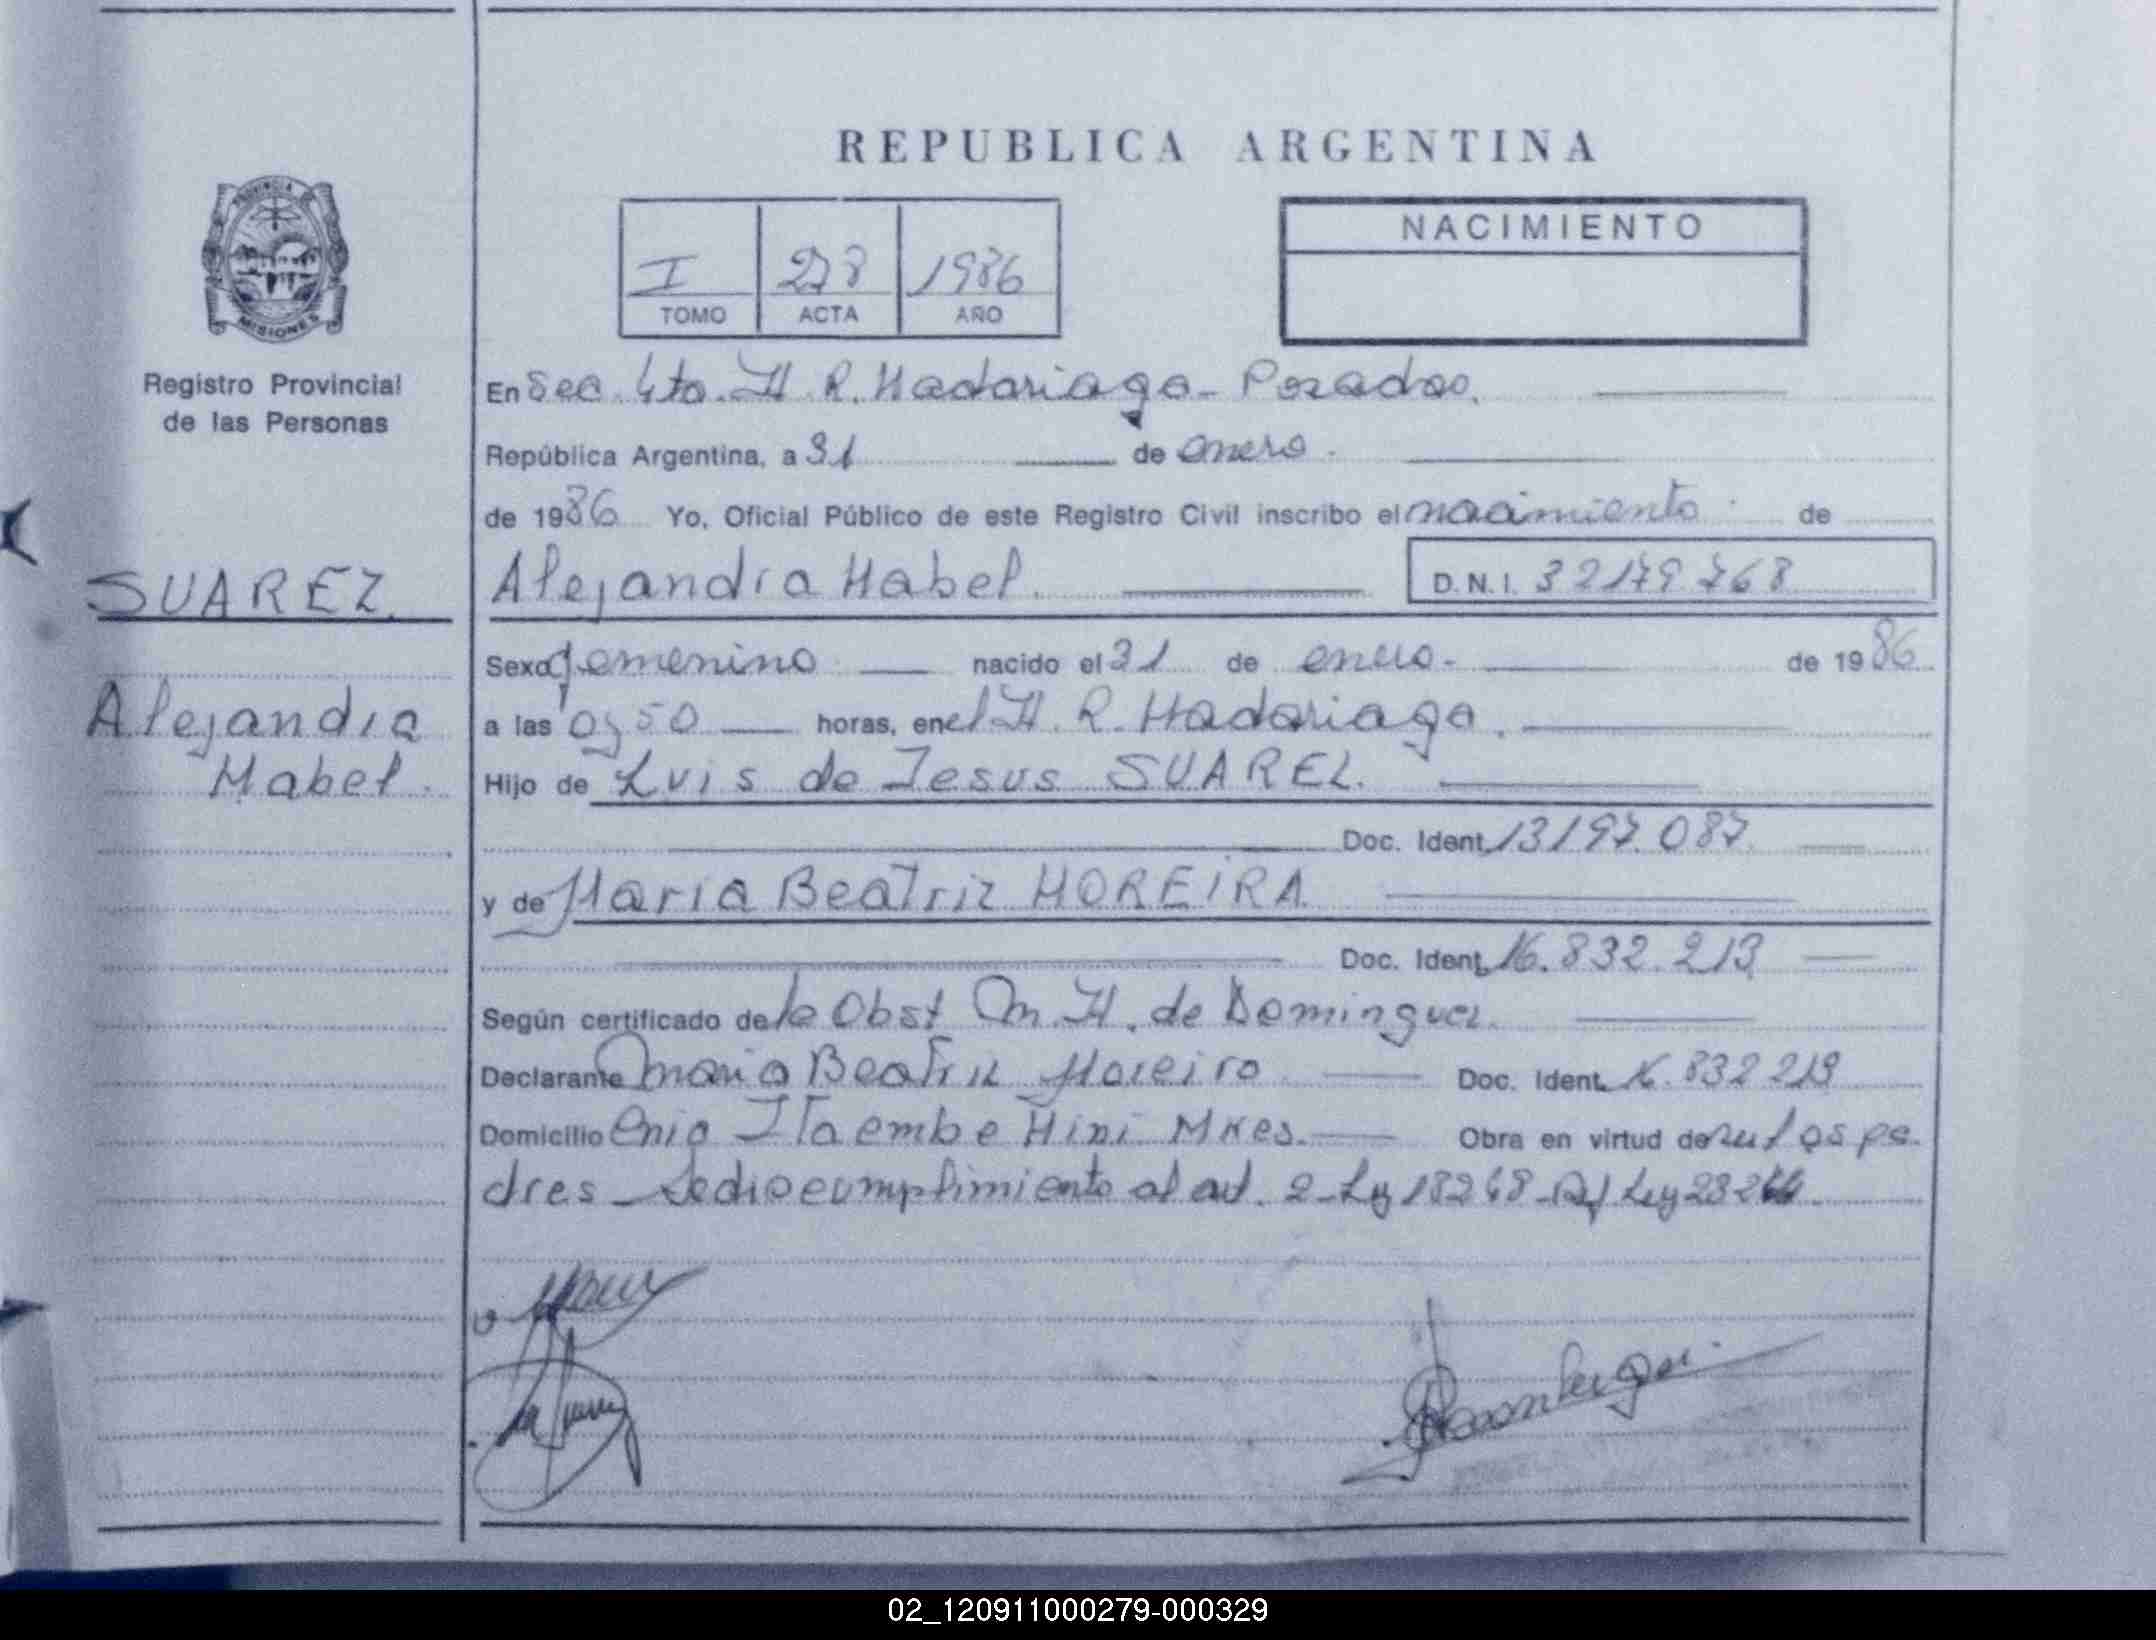 REPUBLICA ARGENTINA
PROVINCIA DE
MISIONES
Registro Provincial
de las Personas
I 278 1986
TOMO ACTA AÑO
NACIMIENTO
En Sec. 4to. H. R. Madariaga - Posadas.
República Argentina, a 31 de enero.
de 1986 Yo, Oficial Público de este Registro Civil inscribo el nacimiento de
SUAREZ.
Alejandra Mabel. D.N.I. 32179768
Alejandra
Mabel.
Sexo femenino nacido el 31 de enero. de 1986
a las 0550 horas, en el H. R. Madariaga.
Hijo de Luis de Jesus SUAREZ.
Doc. Ident. 13197.087.
y de Maria Beatriz MOREIRA
Doc. Ident. 16.832.213
Según certificado de la Obst M. H. de Dominguez.
Declarante Maria Beatriz Moreira Doc. Ident. 16.832 213
Domicilio Itaembe Mini Mnes. Obra en virtud de ser los pa
dres - Se dio cumplimiento al art. 2 - Ley 18248 - Ley
02_120911000279-000329